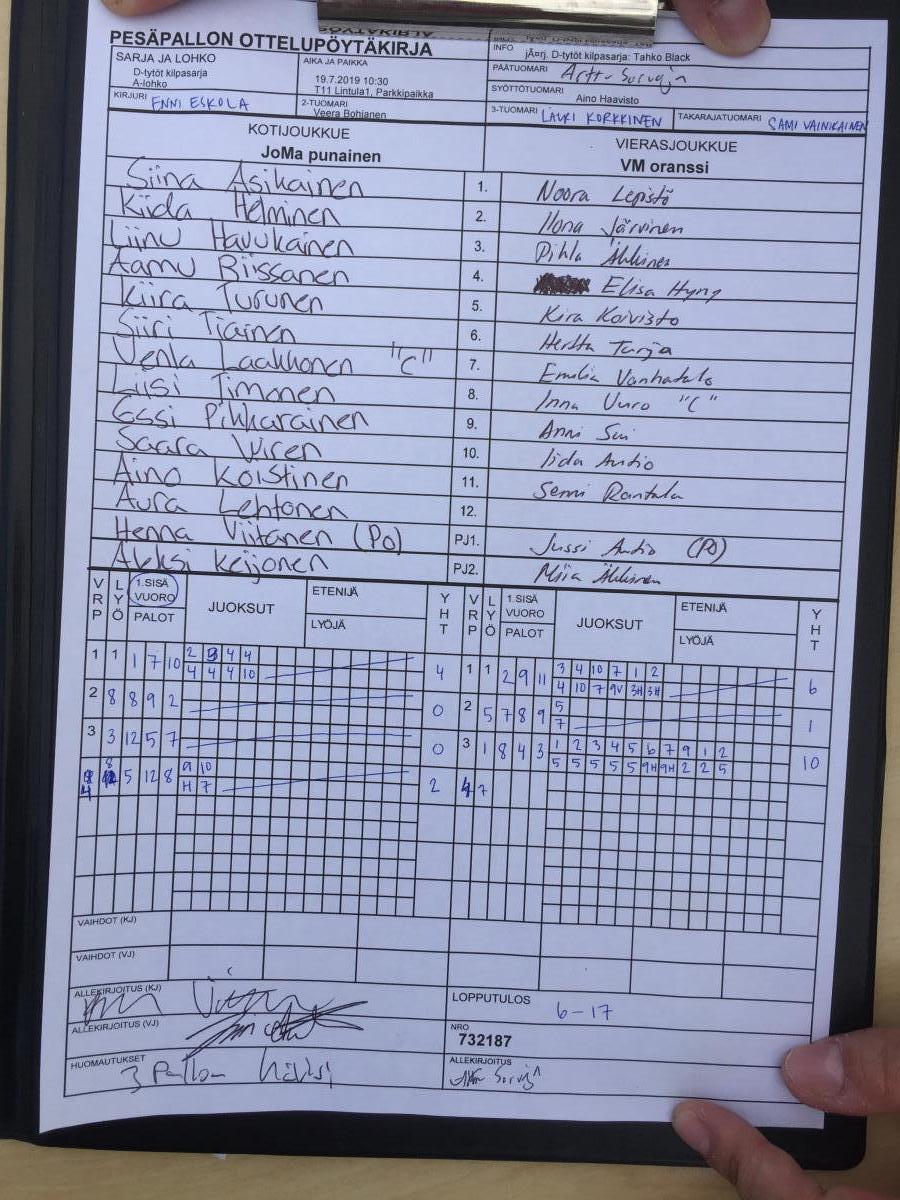 PESÄPALLON OTTELUPÖYTÄKIRJA
INFO jÃ¤rj. D-tytöt kilpasarja: Tahko Black
SARJA JA LOHKO
D-tytöt kilpasarja
A-lohko
AIKA JA PAIKKA
19.7.2019 10:30
T11 Lintula1, Parkkipaikka
PÄÄTUOMARI
SYÖTTÖTUOMARI Aino Haavisto
KIRJURI ENNI ESKOLA
2-TUOMARI Veera Bohianen
3-TUOMARI LAURI KORKKINEN
TAKARAJATUOMARI SAMI VAINIKAINEN
KOTIJOUKKUE VIERASJOUKKUE
JoMa punainen VM oranssi
Siina Asikainen 1. Noora Lepistö
Kiida Helminen 2. Ilona Järvinen
Liinu Havukainen 3. Pihla Ähkinen
Aamu Riissanen 4. Elisa Hyny
Kiira Turunen 5. Kira Koivisto
Siiri Tiainen 6. Hertta Turja
Venla Laakkonen "C" 7. Emilia Vanhatalo
Liisi Timonen 8. Inna Uuro "C"
Essi Pikkarainen 9. Anni Sui
Saara Wiren 10. Iida Autio
Aino Koistinen 11. Senni Rantala
Aura Lehtonen 12.
Henna Viitanen (PO) PJ1. Jussi Autio (PO)
Aleksi Keijonen PJ2. Miia Ähkinen
VRP LYÖ 1.SISÄ VUORO PALOT JUOKSUT ETENIJÄ LYÖJÄ YHT VRP LYÖ 1.SISÄ VUORO PALOT JUOKSUT ETENIJÄ LYÖJÄ YHT
1 1 1 7 10 2 3 4 4 4 1 1 2 9 11 3 4 10 7 1 2 6
4 4 4 10 4 10 7 9V 3H 3H
2 8 8 9 2 0 2 5 7 8 9 5 1
7
3 3 12 5 7 0 3 1 8 4 3 1 2 3 4 5 6 7 9 1 2 10
5 5 5 5 5 9H 9H 2 2 5
4 8 5 12 8 9 10 2 4 7
H 7
VAIHDOT (KJ)
VAIHDOT (VJ)
ALLEKIRJOITUS (KJ)
LOPPUTULOS 6-17
ALLEKIRJOITUS (VJ)
NRO
732187
HUOMAUTUKSET 3 Pallon
ALLEKIRJOITUS